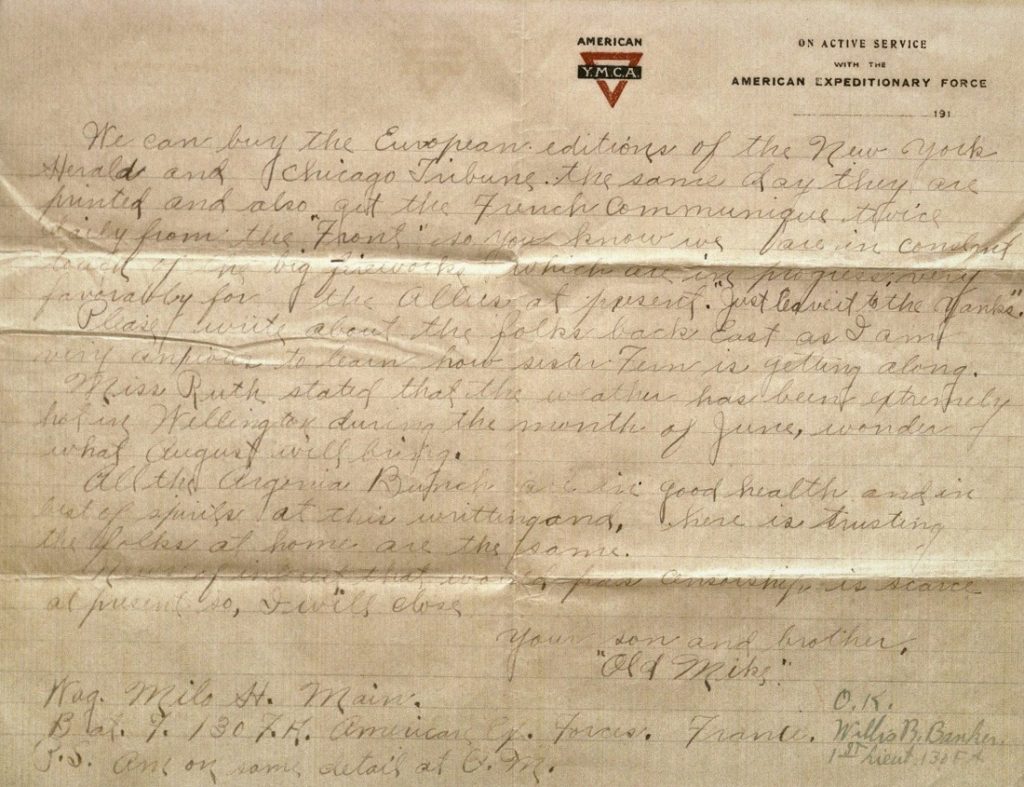 AMERICAN
Y.M.C.A.
ON ACTIVE SERVICE
WITH THE
AMERICAN EXPEDITIONARY FORCE
191
We can buy the European editions of the New York
Herald and Chicago Tribune the same day they are
printed and also get the French Communique twice
daily from the "Front" so you know we are in constant
touch of the big fireworks which are in progress very
favorably for the Allies at present. "Just leave it to the Yanks."
Please write about the folks back East as I am
very anxious to learn how sister Fern is getting along.
Miss Ruth stated that the weather has been extremely
hot in Wellington during the month of June, wonder
what August will bring.
All the Argonia Bunch are in good health and in
best of spirits at this writting and, here is trusting
the folks at home are the same.
News of interest that would pass censorship is scarce
at present so, I will close
Your son and brother,
"Old Mike."
Wag. Milo H. Main.
Bat. F. 130 F.A. American Ex. Forces. France.
P.S. Am on same detail at O.M.
O.K.
Willis B. Banker.
1st Lieut. 130 F.A.